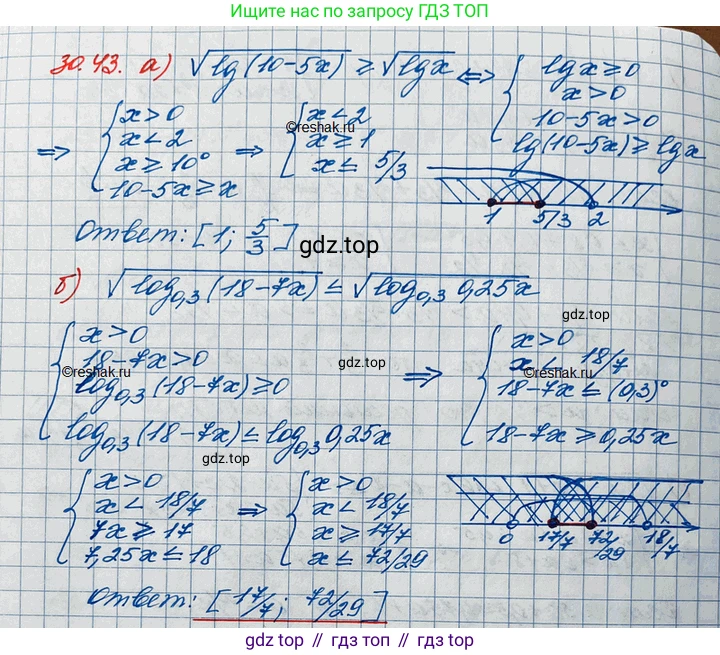 Ищите нас по запросу ГДЗ ТОП
30.43. а) √lg(10-5x) ≥ √lgx ⇔ { lgx ≥ 0
x > 0
10-5x > 0
lg(10-5x) ≥ lgx
⇒ { x > 0
x < 2
x ≥ 10⁰
10-5x ≥ x
⇒ { x < 2
x ≥ 1
x ≤ 5/3
©reshak.ru
1 5/3 2
Ответ: [1; 5/3]
gdz.top
б) √log₀,₃(18-7x) ≤ √log₀,₃ 0,25x
gdz.top
{ x > 0
18-7x > 0
log₀,₃(18-7x) ≥ 0
log₀,₃(18-7x) ≤ log₀,₃ 0,25x
©reshak.ru
gdz.top
⇒ { x > 0
x < 18/7
18-7x ≤ (0,3)⁰
18-7x ≥ 0,25x
©reshak.ru
gdz.top
{ x > 0
x < 18/7
7x ≥ 17
7,25x ≤ 18
⇒ { x > 0
x < 18/7
x ≥ 17/7
x ≤ 72/29
0 17/7 72/29 18/7
Ответ: [17/7; 72/29]
gdz top // гдз топ // gdz.top